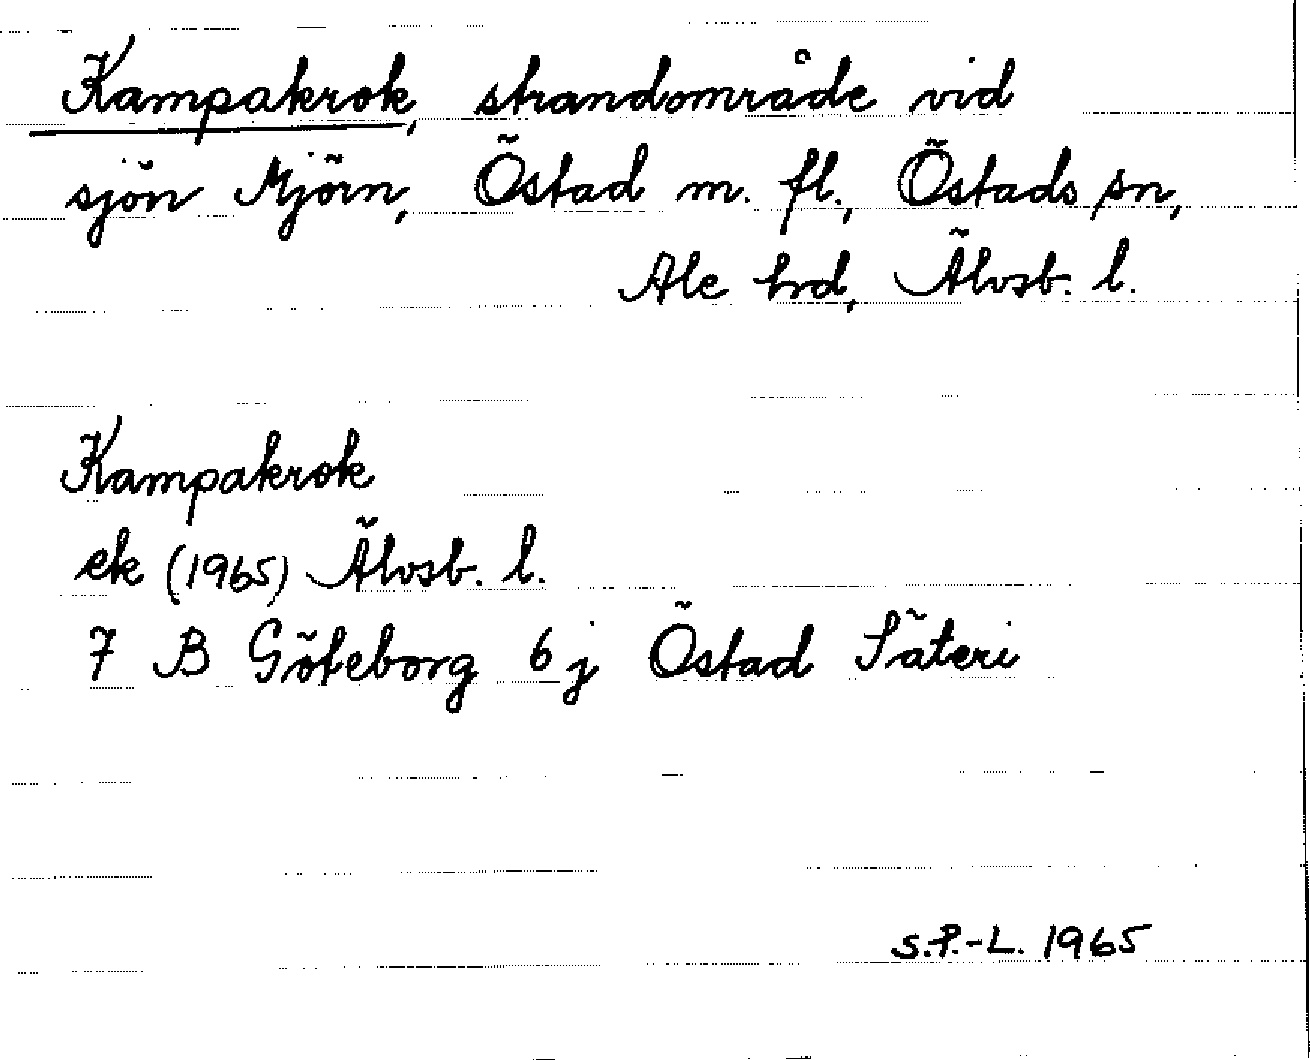 Kampakrok, strandområde vid
sjön Mjörn, Östad m. fl., Östads sn,
Ale hrd, Älvsb. l.
Kampakrok
ek (1965) Älvsb. l.
7 B Göteborg 6 j Östad Säteri
S.P.-L. 1965